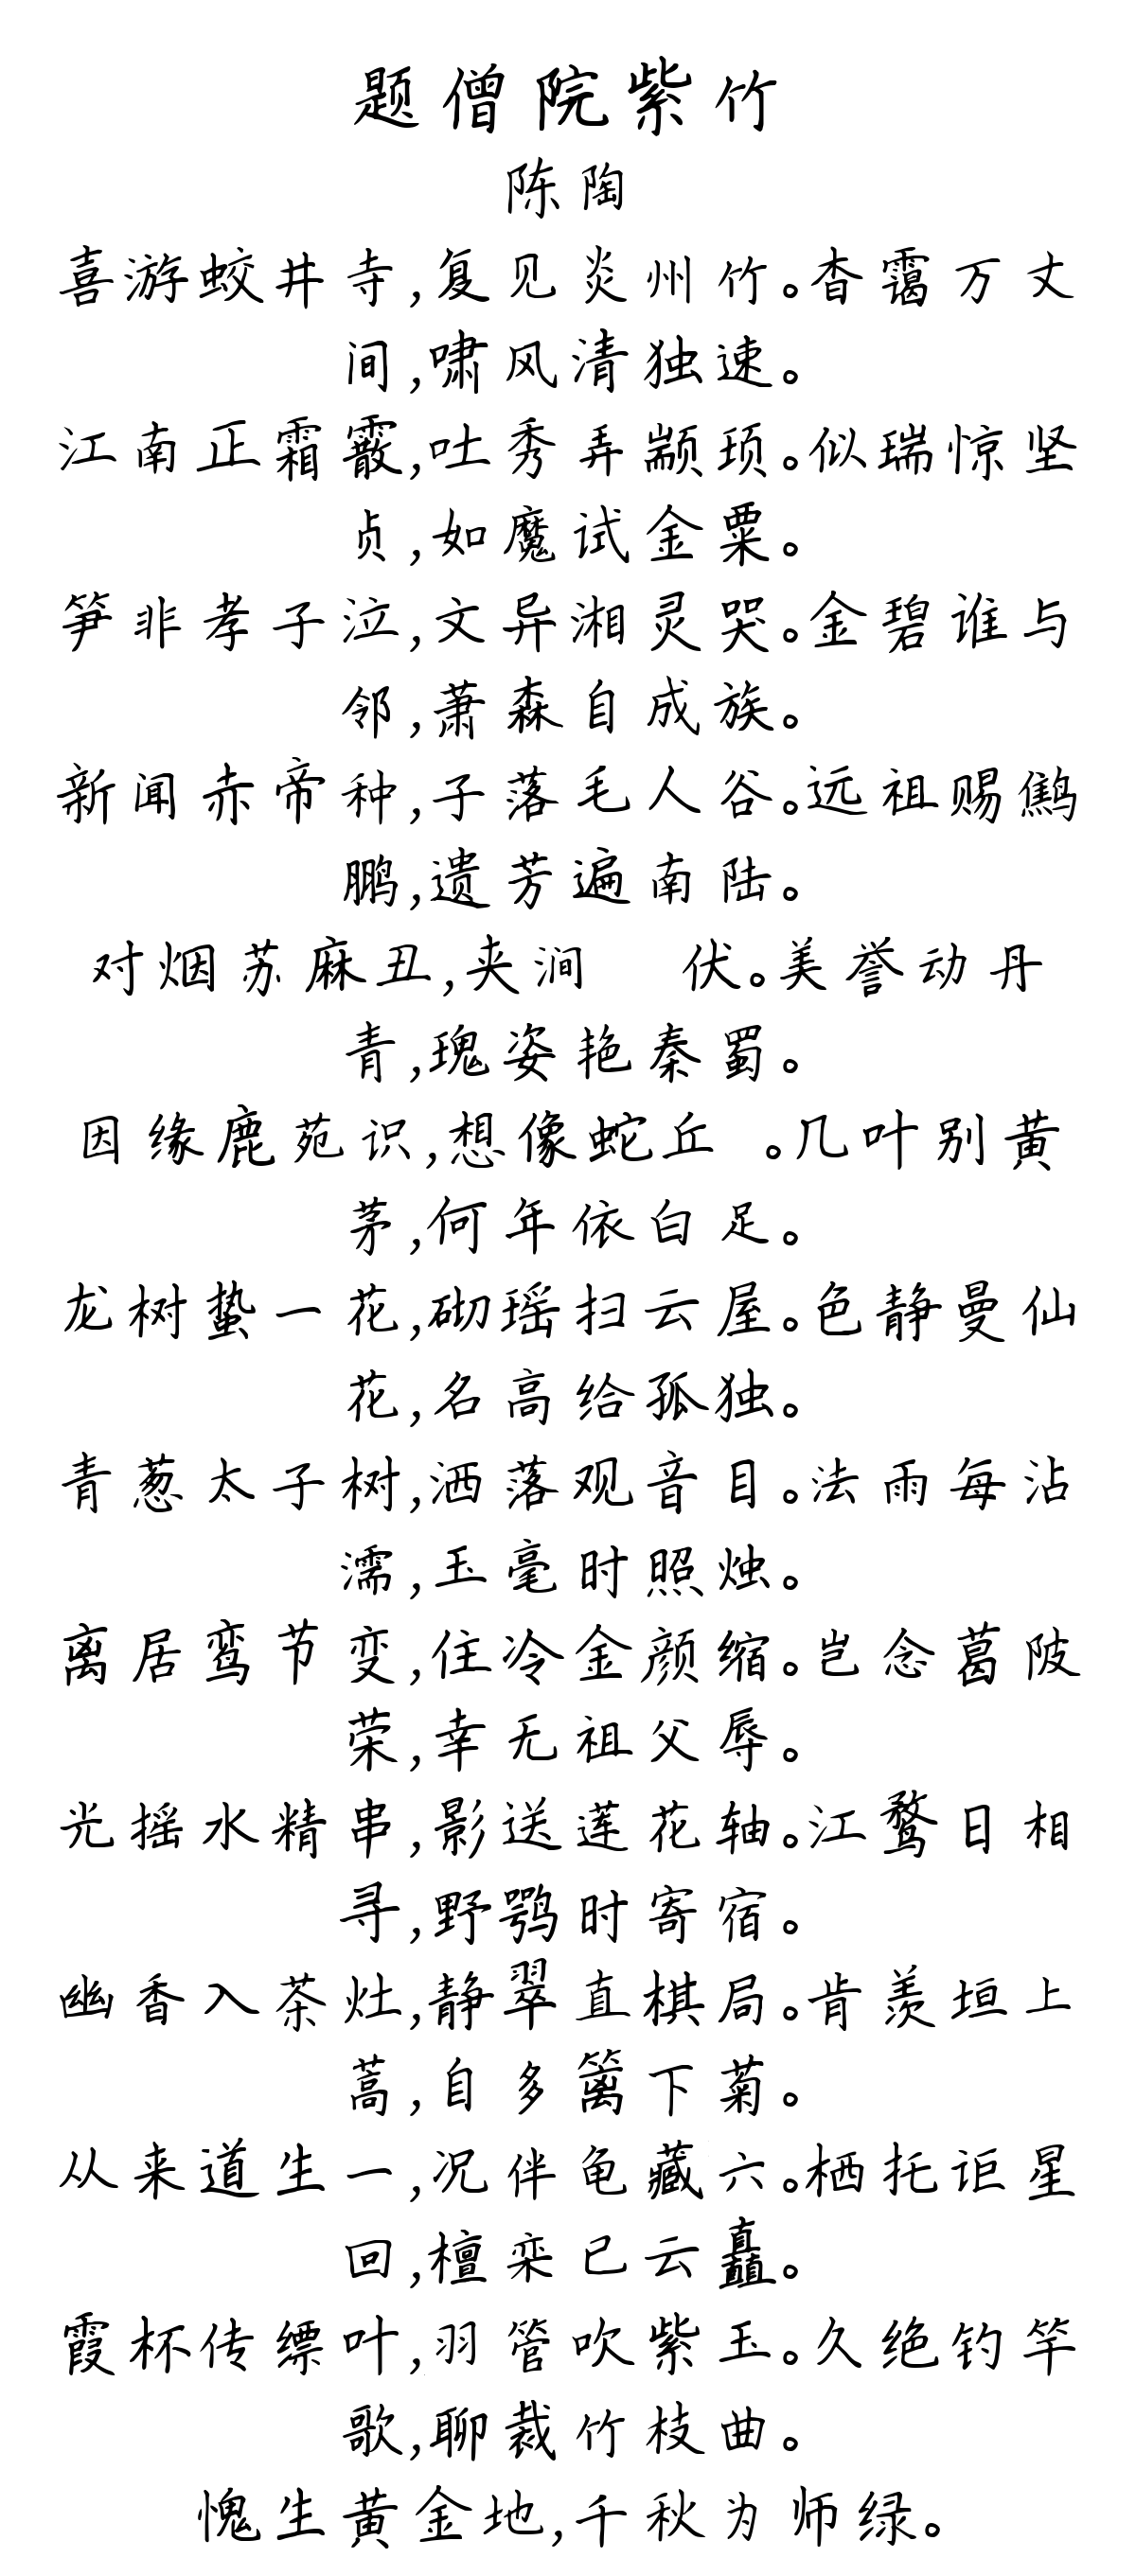 题僧院紫竹
陈陶
喜游蛟井寺,复见炎州竹。杳霭万丈
间,啸风清独速。
江南正霜霰,吐秀弄颛顼。似瑞惊坚
贞,如魔试金粟。
笋非孝子泣,文异湘灵哭。金碧谁与
邻,萧森自成族。
新闻赤帝种,子落毛人谷。远祖赐鹪
鹏,遗芳遍南陆。
对烟苏麻丑,夹涧 伏。美誉动丹
青,瑰姿艳秦蜀。
因缘鹿苑识,想像蛇丘 。几叶别黄
茅,何年依白足。
龙树蛰一花,砌瑶扫云屋。色静曼仙
花,名高给孤独。
青葱太子树,洒落观音目。法雨每沾
濡,玉毫时照烛。
离居鸾节变,住冷金颜缩。岂念葛陂
荣,幸无祖父辱。
光摇水精串,影送莲花轴。江鹜日相
寻,野鹗时寄宿。
幽香入茶灶,静翠直棋局。肯羡垣上
蒿,自多篱下菊。
从来道生一,况伴龟藏六。栖托讵星
回,檀栾已云矗。
霞杯传缥叶,羽管吹紫玉。久绝钓竿
歌,聊裁竹枝曲。
愧生黄金地,千秋为师绿。